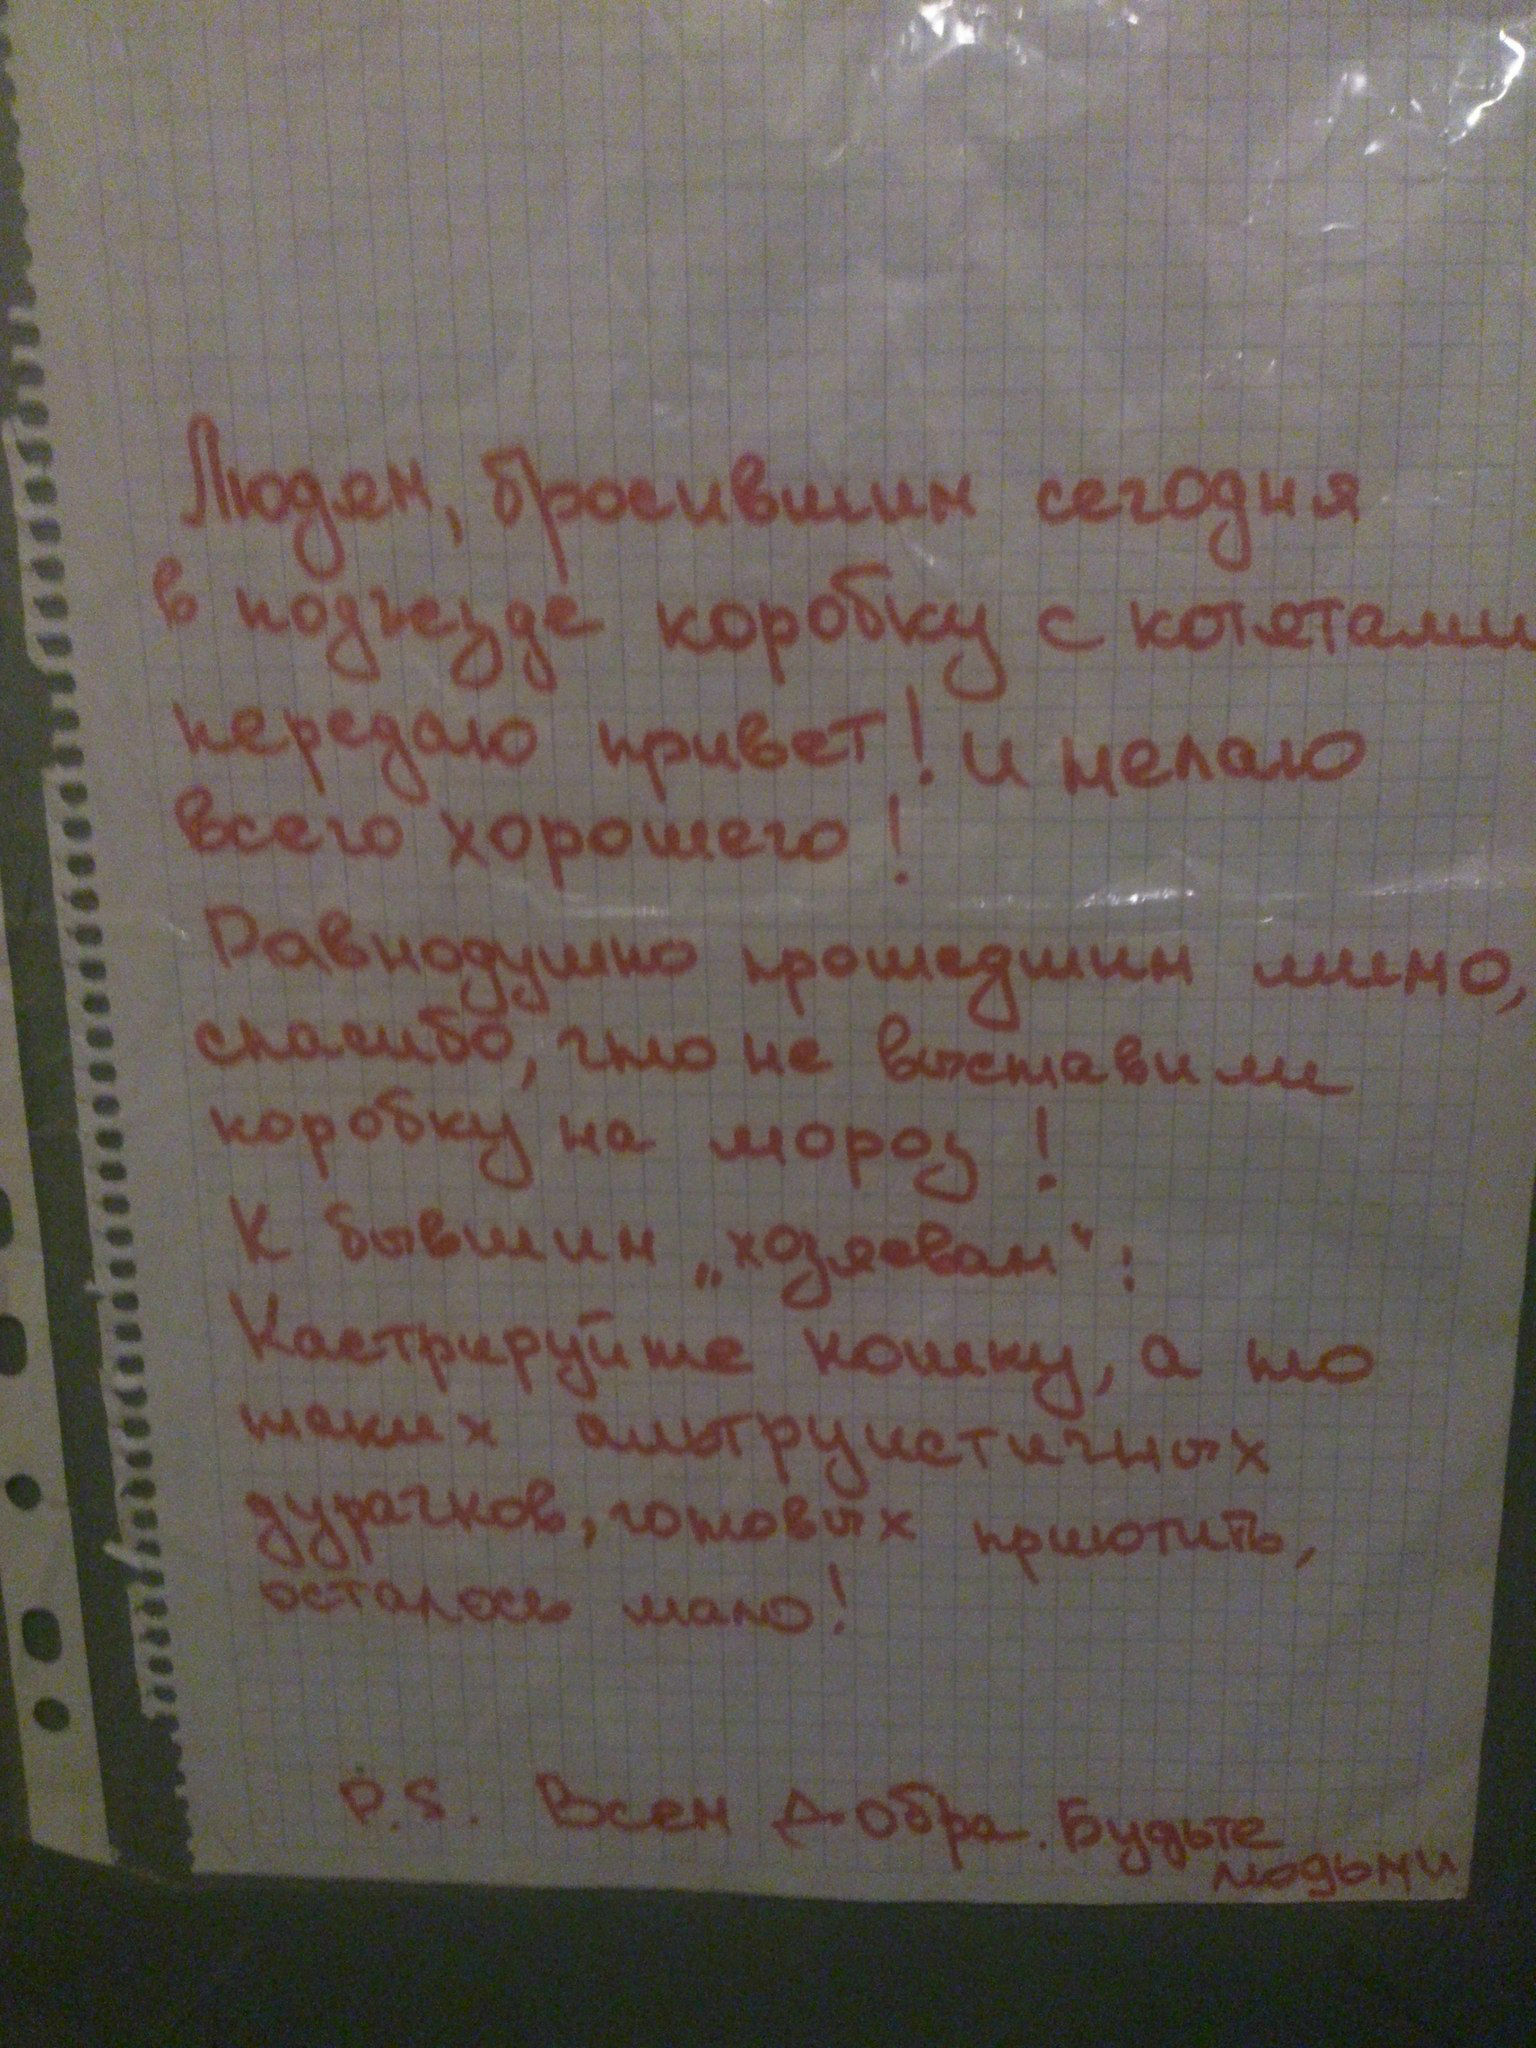 Людям, бросившим сегодня
в подъезде коробку с котятами
передаю привет! и желаю
всего хорошего!
Равнодушно прошедшим мимо,
спасибо, что не выставили
коробку на мороз!
К бывшим „хозяевам“:
Кастрируйте кошку, а то
таких альтруистичных
дурачков, готовых приютить,
осталось мало!
P.S. Всем Добра. Будьте
людьми